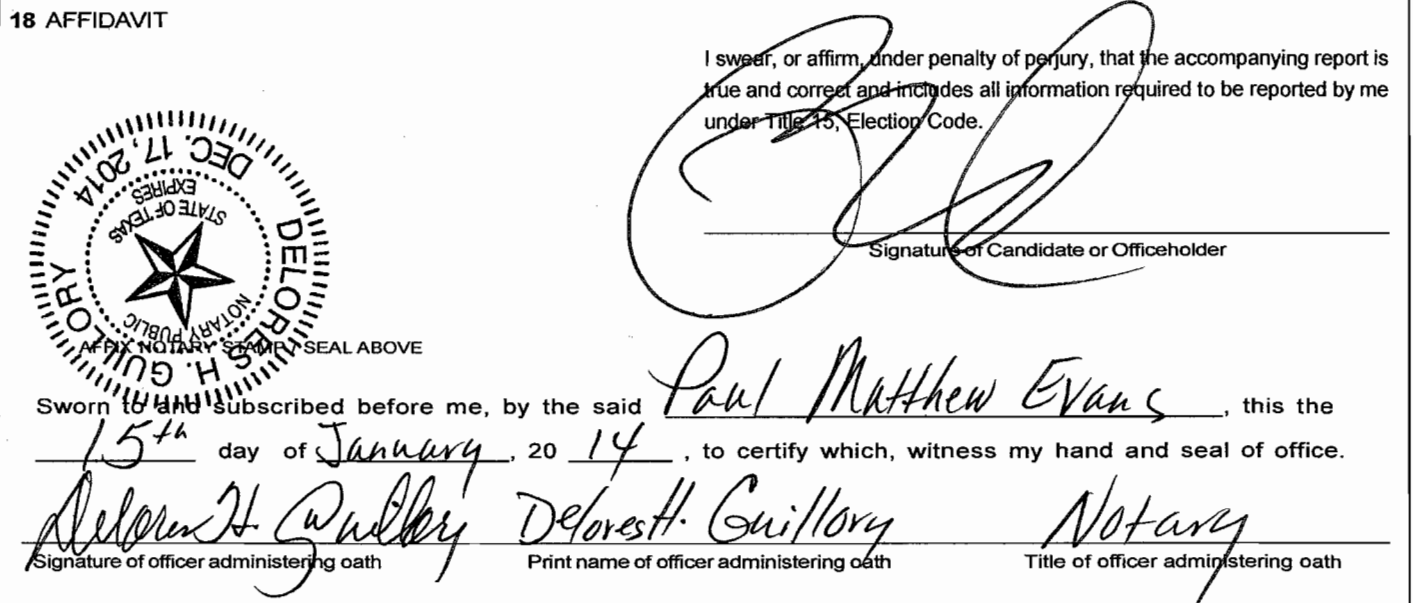 18 AFFIDAVIT
I swear, or affirm, under penalty of perjury, that the accompanying report is
true and correct and includes all information required to be reported by me
under Title 15, Election Code.
Signature of Candidate or Officeholder
DELORES H. GUILLORY
NOTARY PUBLIC
STATE OF TEXAS
EXPIRES
DEC. 17, 2014
AFFIX NOTARY STAMP / SEAL ABOVE
Sworn to and subscribed before me, by the said Paul Matthew Evans, this the
15th day of January, 20 14, to certify which, witness my hand and seal of office.
Delores H. Guillory Delores H. Guillory Notary
Signature of officer administering oath Print name of officer administering oath Title of officer administering oath